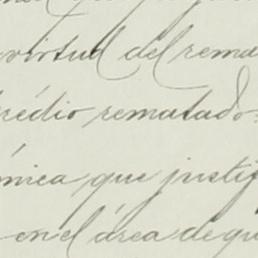 virtud del rema
rédio rematado.
mica que justif
en el área de qu